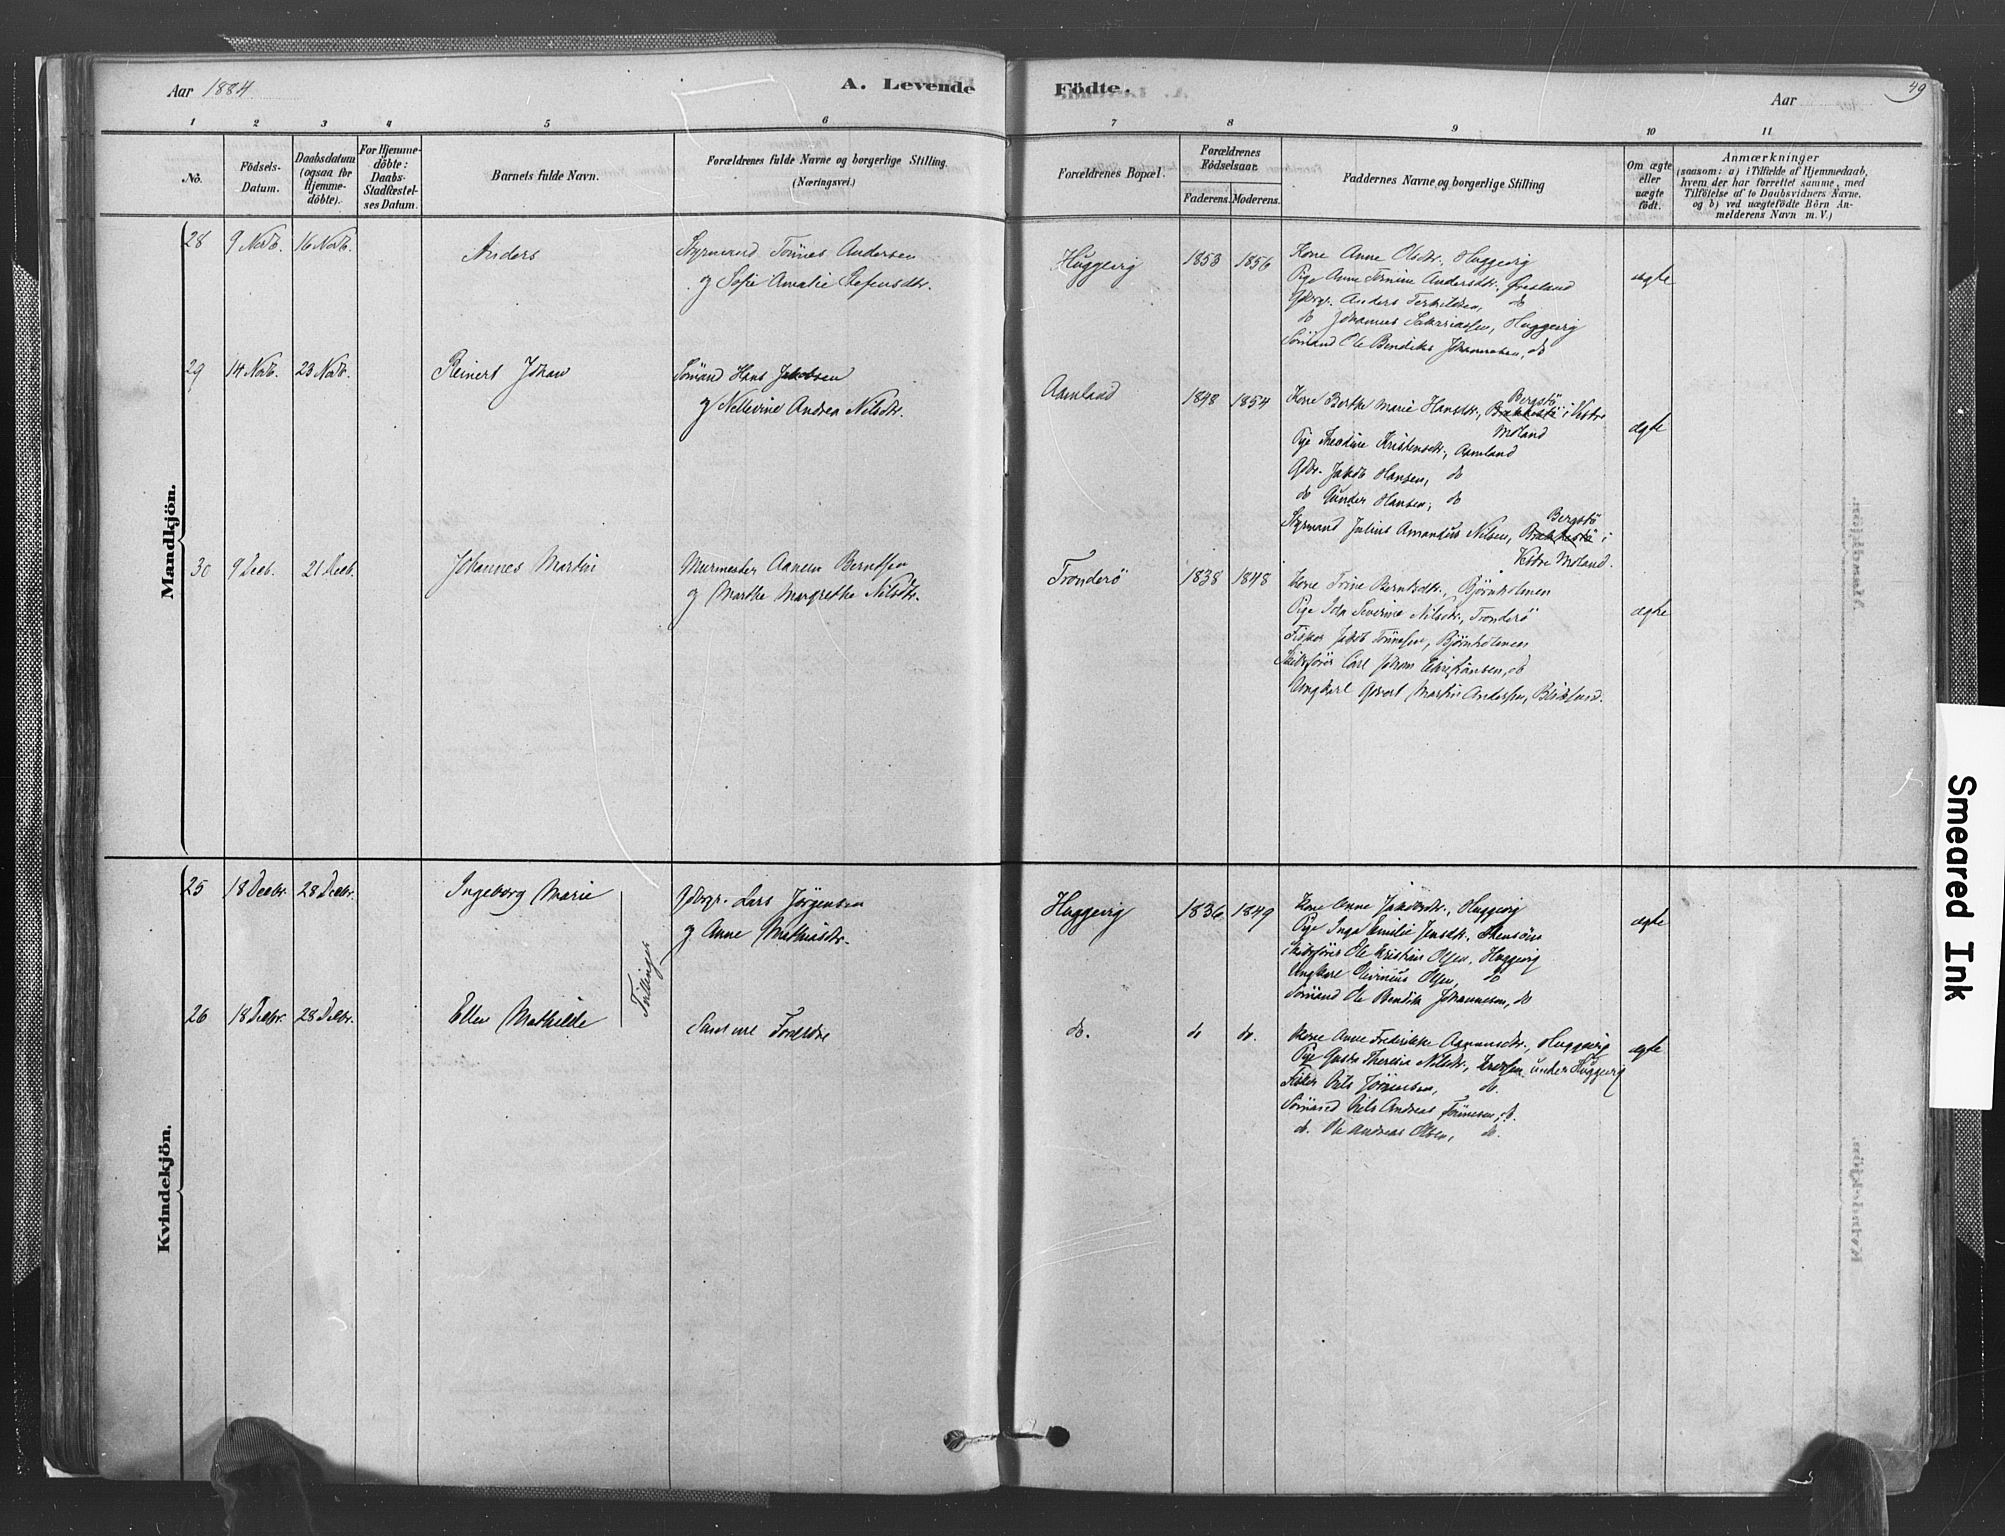 Aar 1884
A. Levende
Födte.
Aar
49
1 2 3 4 5 6 7 8 9 10 11
No.
Födsels-
Datum.
Daabsdatum
(ogsaa for
Hjemme-
döbte).
For Hjemme-
döbte:
Daabs-
Stadfæstel-
ses Datum.
Barnets fulde Navn.
Forældrenes fulde Navne og borgerlige Stilling.
(Næringsvei.)
Forældrenes Bopæl.
Forældrenes
Födselsaar.
Faderens. Moderens.
Faddernes Navne og borgerlige Stilling
Om ægte
eller
uægte
födt.
Anmærkninger
(saasom: a) i Tilfælde af Hjemmedaab,
hvem der har forrettet samme, med
Tilföielse af to Daabsvidners Navne,
og b) ved uægtefödte Börn An-
melderens Navn m. V.)
Mandkjön.
28 9 Novb. 16 Novb. Anders
Styrmand Tönnes Andersen
og Sofie Amalie Stefensdtr.
Huggevig 1853 1856
Kone Anne Olsdtr., Huggevig
Pige Anne Tomine Andersdtr.
Gbrgr. Anders Terkildsen, do
do Johannes Sakariassen, Huggevig
Sömand Ole Bendiks Johannesen, do
ægte
29 14 Novb. 23 Novb. Reinert Johan
Sömand Hans Jakobsen
og Nellevine Andrea Nilsdtr.
Aamland 1848 1854
Kone Berthe Marie Hansdtr., Bergstö i Vestre
Moland
Pige Theodine Kristensdtr., Aamland
Gbr. Jakob Hansen, do
do Gunder Hansen, do
Styrmand Julius Amandus Nilsen, Bergstö i
Vestre Moland.
ægte
30 9 Decb. 21 Decb. Johannes Martin
Murmester Aanen Berntsen
og Marthe Margrethe Nilsdtr.
Tronderö 1838 1848
Kone Trine Berntsdtr., Bjørnholmen
Pige Ida Severine Nilsdtr., Tronderö
Fisker Jakob Tönnesen, Bjørnholmen
Skibsfører Carl Johan Christiansen, do
Ungkarl Martin Andersen, Bliksund.
ægte
Kvindekjön.
25 18 Decbr. 28 Decbr. Ingeborg Marie
Gbrgr. Lars Jörgensen
og Anne Mathiasdtr.
Huggevig 1836 1849
Kone Anne Jakobsdtr., Huggevig
Pige Inga Emilie Jensdtr.
Skibsförer Ole Kristian Olsen, Huggevig
Ungkarl Olsen, do
Sömand Ole Bendik Johannesen, do
ægte
Tvillinger
26 18 Decbr. 28 Decbr. Ellen Mathilde
Samme Forældre
do. do do.
Kone Anne Frederikke Aanensdtr., Huggevig
Pige Theresia Nilsdtr., under Huggevig
Fisker Nils Jörgensen, do.
Sömand Nils Andreas Tönnesen, do.
do. Ole Andreas Olsen, do.
ægte
Smeared Ink